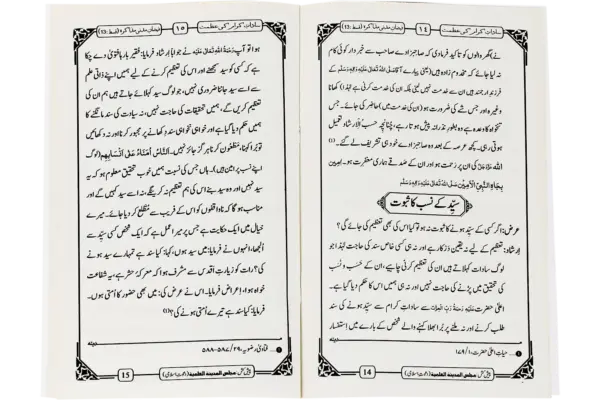 ساداتِ کرام کی عظمت
١٤
فیضانِ مدنی مذاکرہ (قسط:22)
نے گھر والوں کو تاکید فرمادی کہ صاحبزادے صاحب سے خبردار کوئی کام
نہ لیا جائے کہ مخدوم زادہ ہیں (یعنی پیارے آقا صَلَّی اللہُ تَعَالٰی عَلَیْہِ وَاٰلِہٖ وَسَلَّم کے
فرزندِ ارجمند ہیں ان سے خدمت نہیں لینی بلکہ ان کی خدمت کرنی ہے لہٰذا) کھانا
وغیرہ اور جس شے کی ضرورت ہو (ان کی خدمت میں) حاضر کی جائے۔ جس
تنخواہ کا وعدہ ہے وہ بطورِ نذرانہ پیش ہوتا رہے، چنانچہ حسبُ الارشاد تعمیل
ہوتی رہی۔ کچھ عرصہ کے بعد وہ صاحبزادے خود ہی تشریف لے گئے۔(1)
اللہ عَزَّوَجَلَّ کی ان پر رحمت ہو اور ان کے صدقے ہماری مغفرت ہو۔ اٰمِین
بِجَاہِ النَّبِیِّ الْاَمِیْن صَلَّی اللہُ تَعَالٰی عَلَیْہِ وَاٰلِہٖ وَسَلَّم
سیِّد کے نسب کا ثبوت
عرض: اگر کسی کے سیّد ہونے کا ثبوت نہ ہو تو کیا اس کی بھی تعظیم کی جائے گی؟
ارشاد: تعظیم کے لیے نہ یقین درکار ہے اور نہ ہی کسی خاص سند کی حاجت لہٰذا جو
لوگ سادات کہلاتے ہیں ان کی تعظیم کرنی چاہیے، ان کے حسب و نسب
کی تحقیق میں پڑنے کی حاجت نہیں اور نہ ہی ہمیں اس کا حکم دیا گیا ہے۔
اعلیٰ حضرت عَلَیْہِ رَحْمَۃُ رَبِّ الْعِزَّت سے ساداتِ کرام سے سیّد ہونے کی سند
طلب کرنے اور نہ ملنے پر بُرا بھلا کہنے والے شخص کے بارے میں اِستفسار
دینہ
1 حیاتِ اعلیٰ حضرت، ١/١٧٩
14
پیش کش: مجلس المدینۃ العلمیۃ (دعوتِ اسلامی)
ساداتِ کرام کی عظمت
١٥
فیضانِ مدنی مذاکرہ (قسط:22)
ہوا تو آپ رَحْمَۃُ اللہِ تَعَالٰی عَلَیْہ نے جواباً ارشاد فرمایا: فقیر بارہا فتویٰ دے چکا
ہے کہ کسی کو سیّد سمجھنے اور اس کی تعظیم کرنے کے لیے ہمیں اپنے ذاتی علم
سے اُسے سیّد جاننا ضروری نہیں، جو لوگ سیّد کہلائے جاتے ہیں ہم ان کی
تعظیم کریں گے، ہمیں تحقیقات کی حاجت نہیں، نہ سیادت کی سند مانگنے کا
ہمیں حکم دیا گیا ہے اور خواہی نخواہی سند دِکھانے پر مجبور کرنا اور نہ دکھائیں
تو بُرا کہنا، مَطْعُون کرنا ہرگز جائز نہیں۔ اَلنَّاسُ اُمَنَاءُ عَلٰی اَنْسَابِھِم (لوگ
اپنے نسب پر امین ہیں)۔ ہاں جس کی نسبت ہمیں خوب تحقیق معلوم ہو کہ یہ
سیّد نہیں اور وہ سیّد بنے اس کی ہم تعظیم نہ کریں گے، نہ اسے سیّد کہیں گے اور
مناسب ہو گا کہ ناواقفوں کو اس کے فریب سے مُطَّلع کر دیا جائے۔ میرے
خیال میں ایک حکایت ہے جس پر میرا عمل ہے کہ ایک شخص کسی سیّد سے
اُلجھا، انہوں نے فرمایا: میں سیّد ہوں، کہا: کیا سند ہے تمہارے سیّد ہونے
کی؟ رات کو زیارتِ اَقدس سے مشرف ہوا کہ معرکۂ حشر ہے، یہ شفاعت
خواہ ہوا، اِعراض فرمایا۔ اس نے عرض کی: میں بھی حضور کا اُمتی ہوں۔
فرمایا: کیا سند ہے تیرے اُمتی ہونے کی؟(1)
دینہ
1 فتاویٰ رضویہ، ٢٩/٥٨٧-٥٨٨
15
پیش کش: مجلس المدینۃ العلمیۃ (دعوتِ اسلامی)